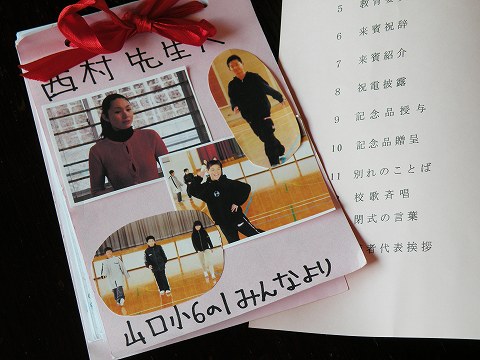 西村先生へ
山口小6の1みんなより
5 教育委
6 来賓祝辞
7 来賓紹介
8 祝電披露
9 記念品授与
10 記念品贈呈
11 別れのことば
校歌斉唱
閉式の言葉
者代表挨拶